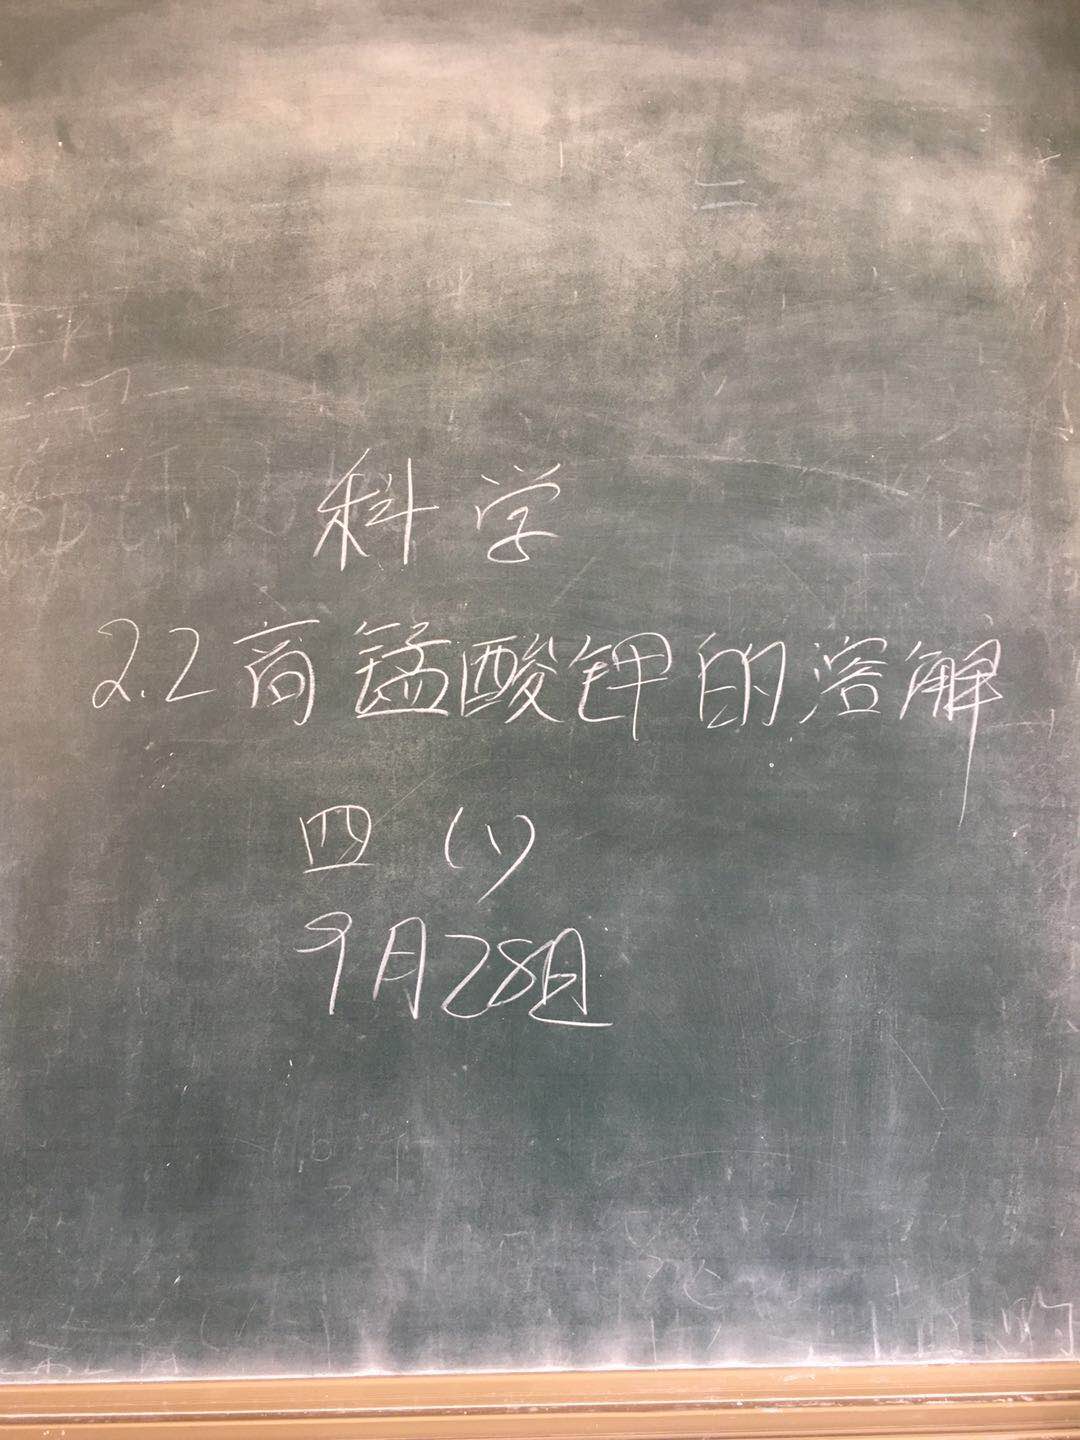 科学
2.2高锰酸钾的溶解
四(1)
9月28日